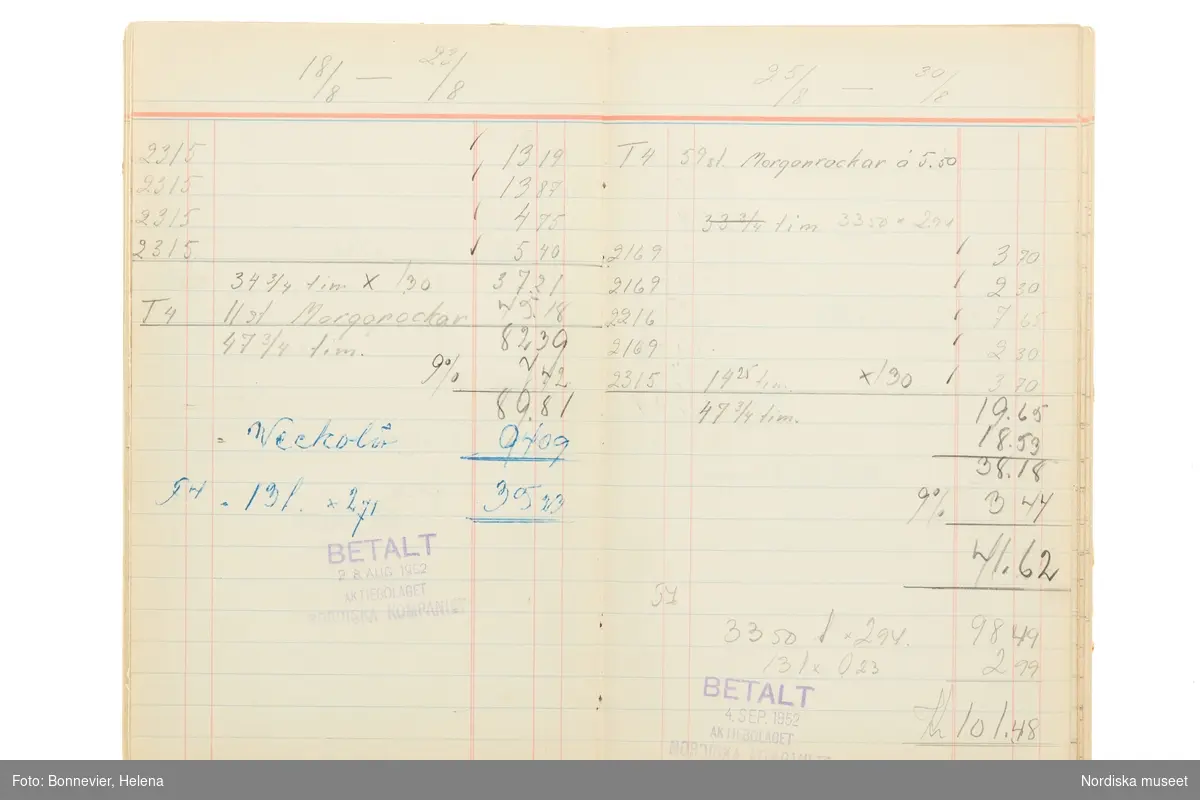 18/8 — 23/8
2315 13 19
2315 13 87
2315 4 75
2315 5 40
34 3/4 tim x 1.30 37.21
T4 11 st Morgonrockar 45.18
47 3/4 tim. 82 39
9% 7 42
89.81
= Veckolön
54 = 13 t. x 2 71 35 23
BETALT
28 AUG 1952
AKTIEBOLAGET
NORDISKA KOMPANIET
25/8 — 30/8
T4 59 st. Morgonrockar á 5.50
33 3/4 tim 33 50 x 2 94
2169 3 70
2169 2 30
2216 7 65
2169 2 30
2315 14 25 tim. x 1 30 3 70
47 3/4 tim. 19.65
18.53
38.18
9% 3 44
41.62
33 50 t x 2 94. 98 49
13 t x 0 23 2 99
Kr 101.48
BETALT
4. SEP. 1952
AKTIEBOLAGET
NORDISKA KOMPANIET
Foto: Bonnevier, Helena
Nordiska museet